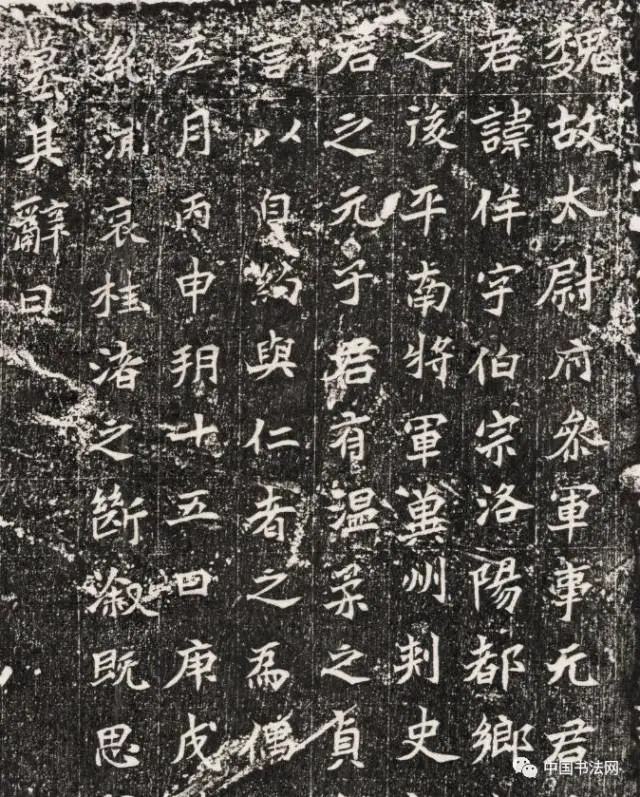 魏故太尉府參軍事元君
君諱侔字伯宗洛陽都鄉
之後平南將軍冀州刺史
君之元子君有温柔之貞
言以自約與仁者之爲僑
五月丙申朔十五日庚戌
紀流哀桂渚之斷淑既思
墓其辭曰
中国书法网